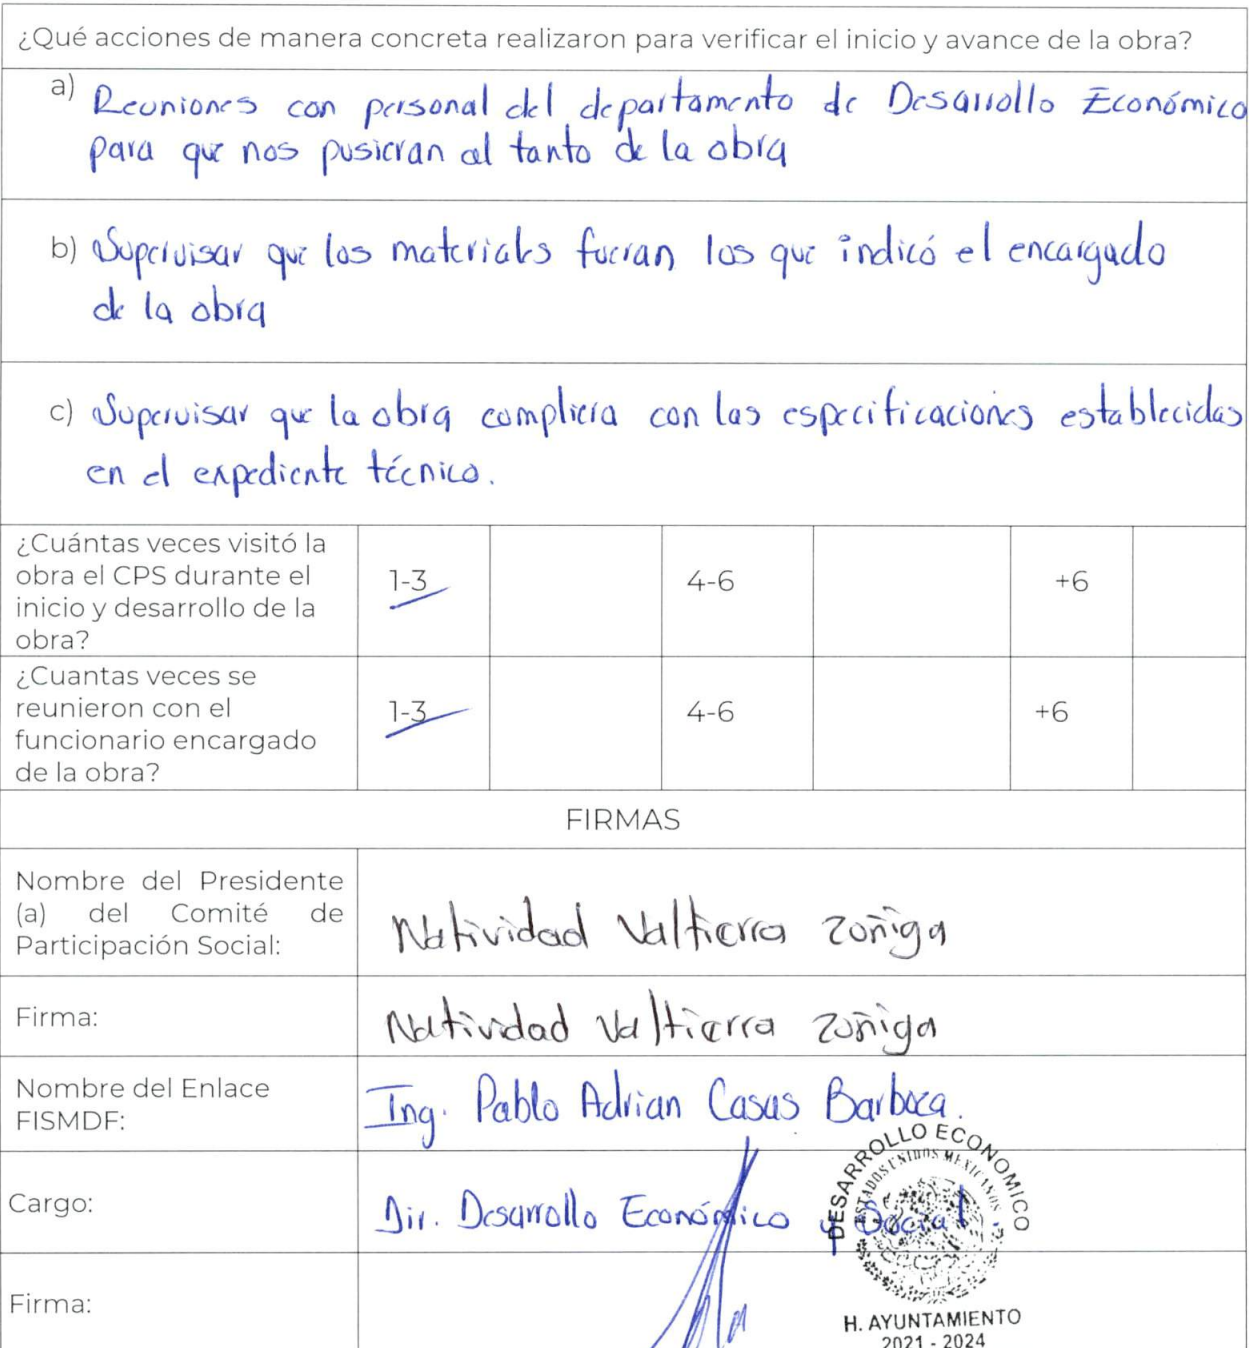 ¿Qué acciones de manera concreta realizaron para verificar el inicio y avance de la obra?
a) Reuniones con personal del departamento de Desarrollo Económico
para que nos pusieran al tanto de la obra
b) Supervisar que los materiales fueran los que indicó el encargado
de la obra
c) Supervisar que la obra compliera con las especificaciones establecidas
en el expediente técnico.
¿Cuántas veces visitó la
obra el CPS durante el
inicio y desarrollo de la
obra?
1-3 4-6 +6
¿Cuantas veces se
reunieron con el
funcionario encargado
de la obra?
1-3 4-6 +6
FIRMAS
Nombre del Presidente
(a) del Comité de
Participación Social:
Natividad Valtierra zoñiga
Firma:
Natividad Valtierra zuñiga
Nombre del Enlace
FISMDF:
Ing. Pablo Adrian Casas Barboza.
Cargo:
Dir. Desarrollo Económico y Social.
DESARROLLO ECONOMICO
ESTADOS UNIDOS MEXICANOS
Firma:
H. AYUNTAMIENTO
2021 - 2024